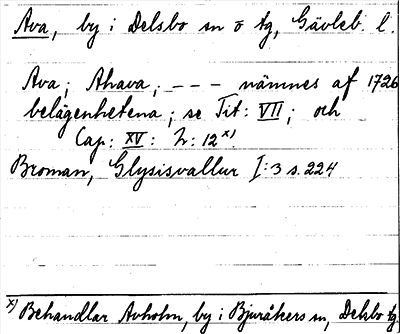 Ava, by i Delsbo sn o tg, Gävleb. l.
Ava; Ahava; - - - nämnes af 1726
belägenhetena; se Tit: VII; och
Cap: XV: L: 12 x)
Broman, Glysisvallur I:3 s. 224
x) Behandlar Avholm, by i Bjuråkers sn, Delsbo tg